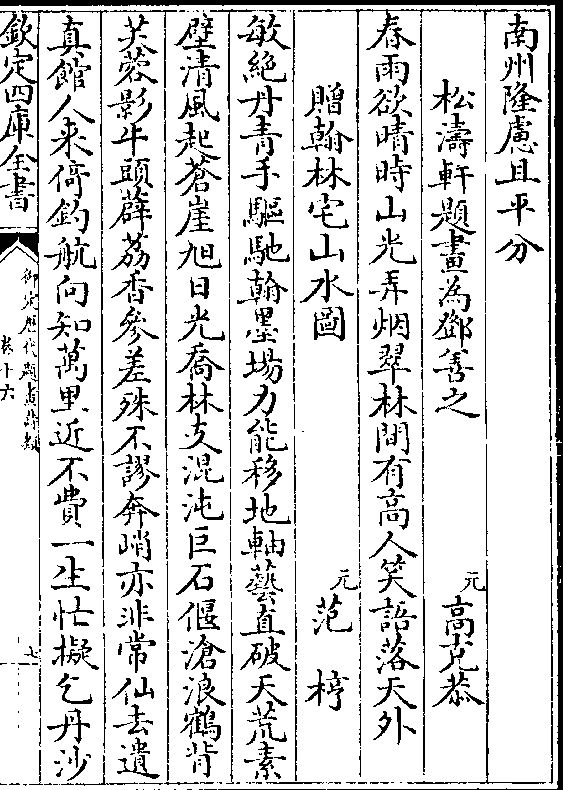 南州隆慮且平分
松濤軒題畫為鄧善之
元
高克恭
春雨欲晴時山光弄烟翠林間有高人笑語落天外
贈翰林宅山水圖
元
范梈
敏絶丹青手驅馳翰墨場力能移地軸藝直破天荒素
壁清風起蒼崖旭日光喬林支混沌巨石偃滄浪鶴背
芙蓉影牛頭薜荔香參差殊不謬奔峭亦非常仙去遺
真館人来倚釣航向知萬里近不費一生忙擬乞丹沙
欽定四庫全書
御定歴代題畫詩類
卷十六
七